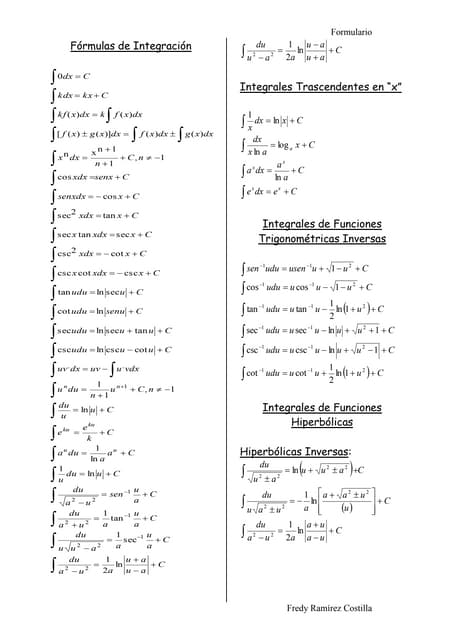 Formulario
Fórmulas de Integración
∫ 0dx = C
∫ kdx = kx + C
∫ kf(x)dx = k ∫ f(x)dx
∫ [f(x) ± g(x)]dx = ∫ f(x)dx ± ∫ g(x)dx
∫ xⁿ dx = xⁿ⁺¹/(n+1) + C, n ≠ −1
∫ cos xdx = senx + C
∫ senxdx = − cos x + C
∫ sec² xdx = tan x + C
∫ sec x tan xdx = sec x + C
∫ csc² xdx = − cot x + C
∫ csc x cot xdx = − csc x + C
∫ tan udu = ln|sec u| + C
∫ cot udu = ln|senu| + C
∫ sec udu = ln|sec u + tan u| + C
∫ csc udu = ln|csc u − cot u| + C
∫ uv· dx = uv − ∫ u·vdx
∫ uⁿ du = 1/(n+1) uⁿ⁺¹ + C, n ≠ −1
∫ du/u = ln|u| + C
∫ eᵏᵘ = eᵏᵘ/k + C
∫ aⁿ du = 1/(ln a) aⁿ + C
∫ 1/u du = ln|u| + C
∫ du/√(a² − u²) = sen⁻¹ u/a + C
∫ du/(a² + u²) = 1/a tan⁻¹ u/a + C
∫ du/(u√(u² − a²)) = 1/a sec⁻¹ u/a + C
∫ du/(a² − u²) = 1/2a ln|(u + a)/(u − a)| + C
∫ du/(u² − a²) = 1/2a ln|(u − a)/(u + a)| + C
Integrales Trascendentes en “x”
∫ 1/x dx = ln|x| + C
∫ dx/(x ln a) = logₐ x + C
∫ aˣ dx = aˣ/ln a + C
∫ eˣ dx = eˣ + C
Integrales de Funciones
Trigonométricas Inversas
∫ sen⁻¹udu = usen⁻¹u + √(1 − u²) + C
∫ cos⁻¹ udu = u cos⁻¹ u − √(1 − u²) + C
∫ tan⁻¹ udu = u tan⁻¹ u − 1/2 ln(1 + u²) + C
∫ sec⁻¹ udu = u sec⁻¹ u − ln|u + √(u² + 1)| + C
∫ csc⁻¹ udu = u csc⁻¹ u − ln|u + √(u² − 1)| + C
∫ cot⁻¹ udu = u cot⁻¹ u + 1/2 ln(1 + u²) + C
Integrales de Funciones
Hiperbólicas
Hiperbólicas Inversas:
∫ du/√(u² ± a²) = ln(u + √(u² ± a²)) + C
∫ du/(u√(a² ± u²)) = − 1/a ln[(a + √(a² ± u²))/(u)] + C
∫ du/(a² − u²) = 1/2a ln|(a + u)/(a − u)| + C
Fredy Ramírez Costilla